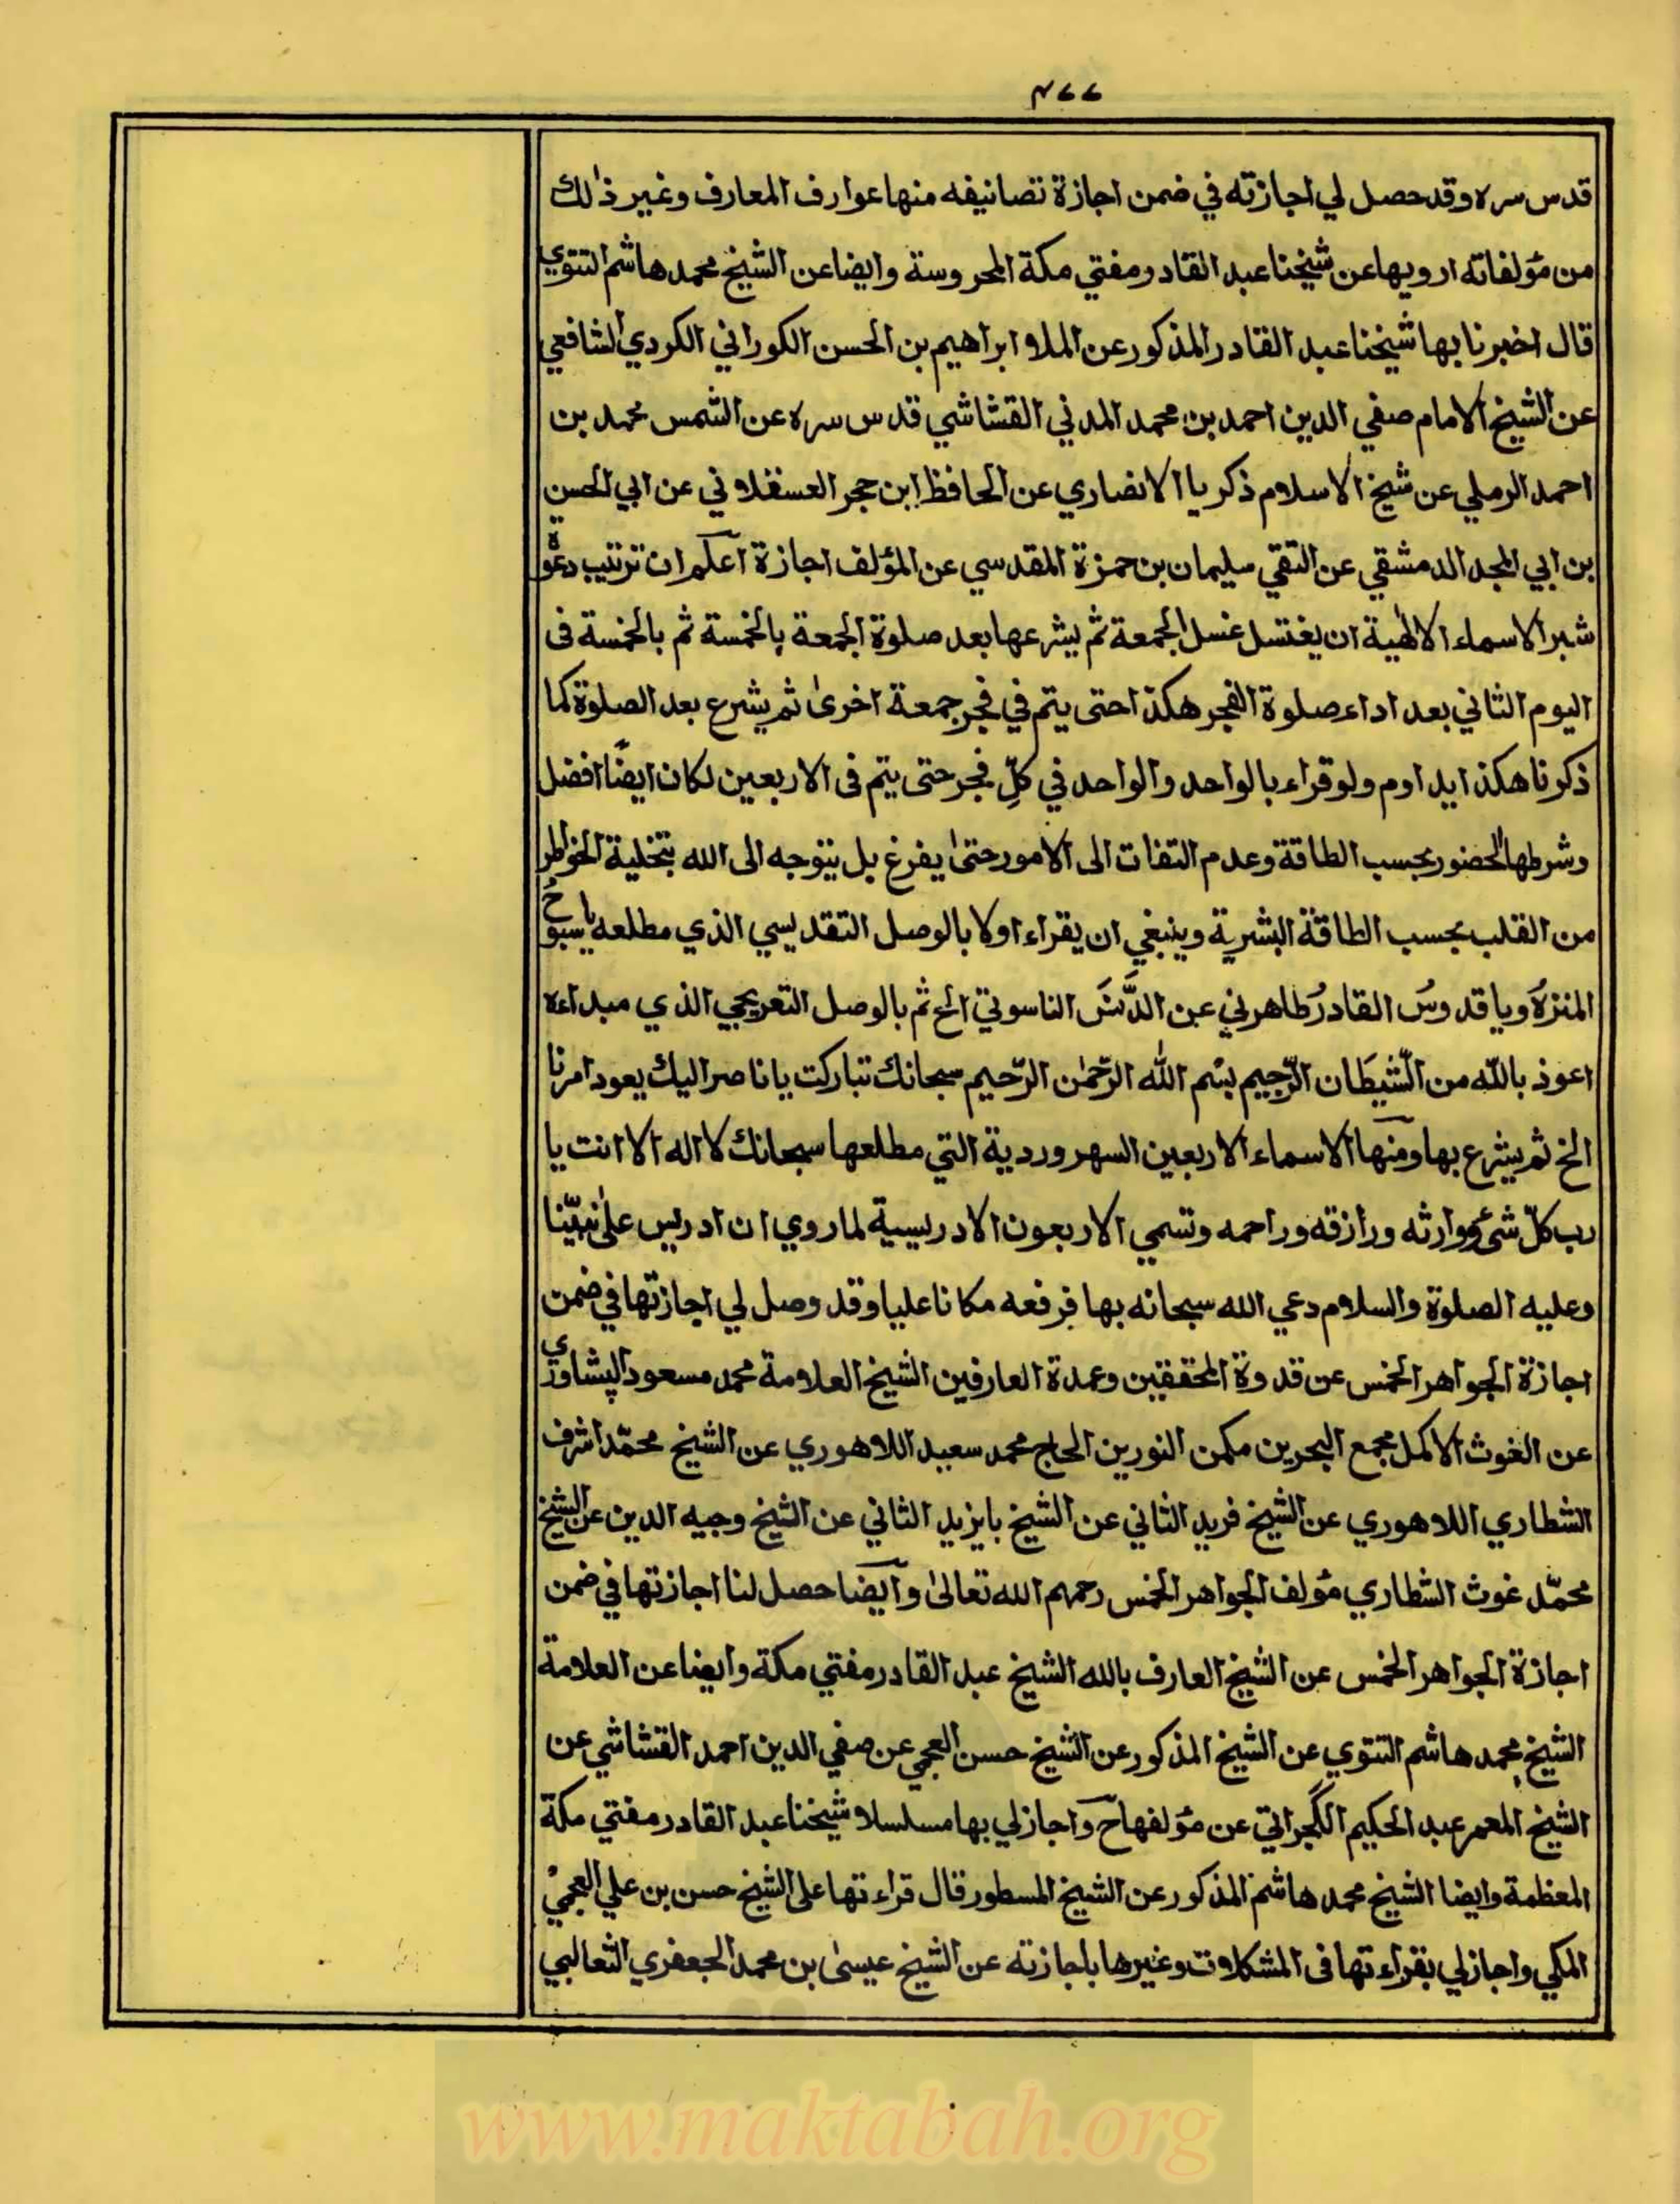 ٣٧٧
قدس سره وقد حصل لي اجازته في ضمن اجازة تصانيفه منها عوارف المعارف وغير ذلك
من مؤلفاته ارويها عن شيخنا عبد القادر مفتي مكة المحروسة وايضا عن الشيخ محمد هاشم التتوي
قال اخبرنا بها شيخنا عبد القادر المذكور عن الملا ابراهيم بن الحسن الكوراني الكردي الشافعي
عن الشيخ الامام صفي الدين احمد بن محمد المدني القشاشي قدس سره عن الشمس محمد بن
احمد الرملي عن شيخ الاسلام ذكريا الانصاري عن الحافظ ابن حجر العسقلاني عن ابي الحسن
بن ابي المجد الدمشقي عن التقي سليمان بن حمزة المقدسي عن المؤلف اجازة اعلم ان ترتيب دعوة
شبر الاسماء الالهية ان يغتسل غسل الجمعة ثم يشرعها بعد صلوة الجمعة بالخمسة ثم بالخمسة فى
اليوم الثاني بعد اداء صلوة الفجر هكذا حتى يتم في فجر جمعة اخرىٰ ثم يشرع بعد الصلوة كما
ذكرنا هكذا يداوم ولو قراء بالواحد والواحد في كلِّ فجر حتى يتم فى الاربعين لكان ايضًا افضل
وشرطها الحضور بحسب الطاقة وعدم التفات الى الامور حتىٰ يفرغ بل يتوجه الى الله بتخلية الخواطر
من القلب بحسب الطاقة البشرية وينبغي ان يقراء اولا بالوصل التقديسي الذي مطلعه يا سبوحُ
المنزهُ ويا قدوسُ القادرُ طاهرني عن الدَّنَسَ الناسوتي الخ ثم بالوصل التعريجي الذي مبداءه
اعوذ باللّه من الشّيطَان الرّجيم بسْم اللّه الرّحمٰن الرّحيم سبحانك تباركت يا ناصر اليك يعود امرنا
الخ ثم يشرع بها ومنها الاسماء الاربعين السهروردية التي مطلعها سبحانك لا اله الا انت يا
رب كلّ شئ ووارثه ورازقه وراحمه وتسمي الاربعون الادريسية لما روي ان ادريس علىٰ نبيّنا
وعليه الصلوة والسلام دعي الله سبحانه بها فرفعه مكانا عليا وقد وصل لي اجازتها في ضمن
اجازة الجواهر الخمس عن قدوة المحققين وعمدة العارفين الشيخ العلامة محمد مسعود الپشاوري
عن الغوث الاكمل مجمع البحرين مكمن النورين الحاج محمد سعيد اللاهوري عن الشيخ محمّد اشرف
الشطاري اللاهوري عن الشيخ فريد الثاني عن الشيخ بايزيد الثاني عن الشيخ وجيه الدين عن الشيخ
محمّد غوث الشطاري مؤلف الجواهر الخمس رحمهم الله تعالىٰ وايضا حصل لنا اجازتها في ضمن
اجازة الجواهر الخمس عن الشيخ العارف بالله الشيخ عبد القادر مفتي مكة وايضا عن العلامة
الشيخ محمد هاشم التتوي عن الشيخ المذكور عن الشيخ حسن العجمي عن صفي الدين احمد القشاشي عن
الشيخ المعمر عبد الحكيم الگجراتي عن مؤلفها ح واجازلي بها مسلسلا شيخنا عبد القادر مفتي مكة
المعظمة وايضا الشيخ محمد هاشم المذكور عن الشيخ المسطور قال قراءتها على الشيخ حسن بن علي العجمي
المكي واجازلي بقراءتها فى المشكلات وغيرها باجازته عن الشيخ عيسىٰ بن محمد الجعفري الثعالبي
www.maktabah.org